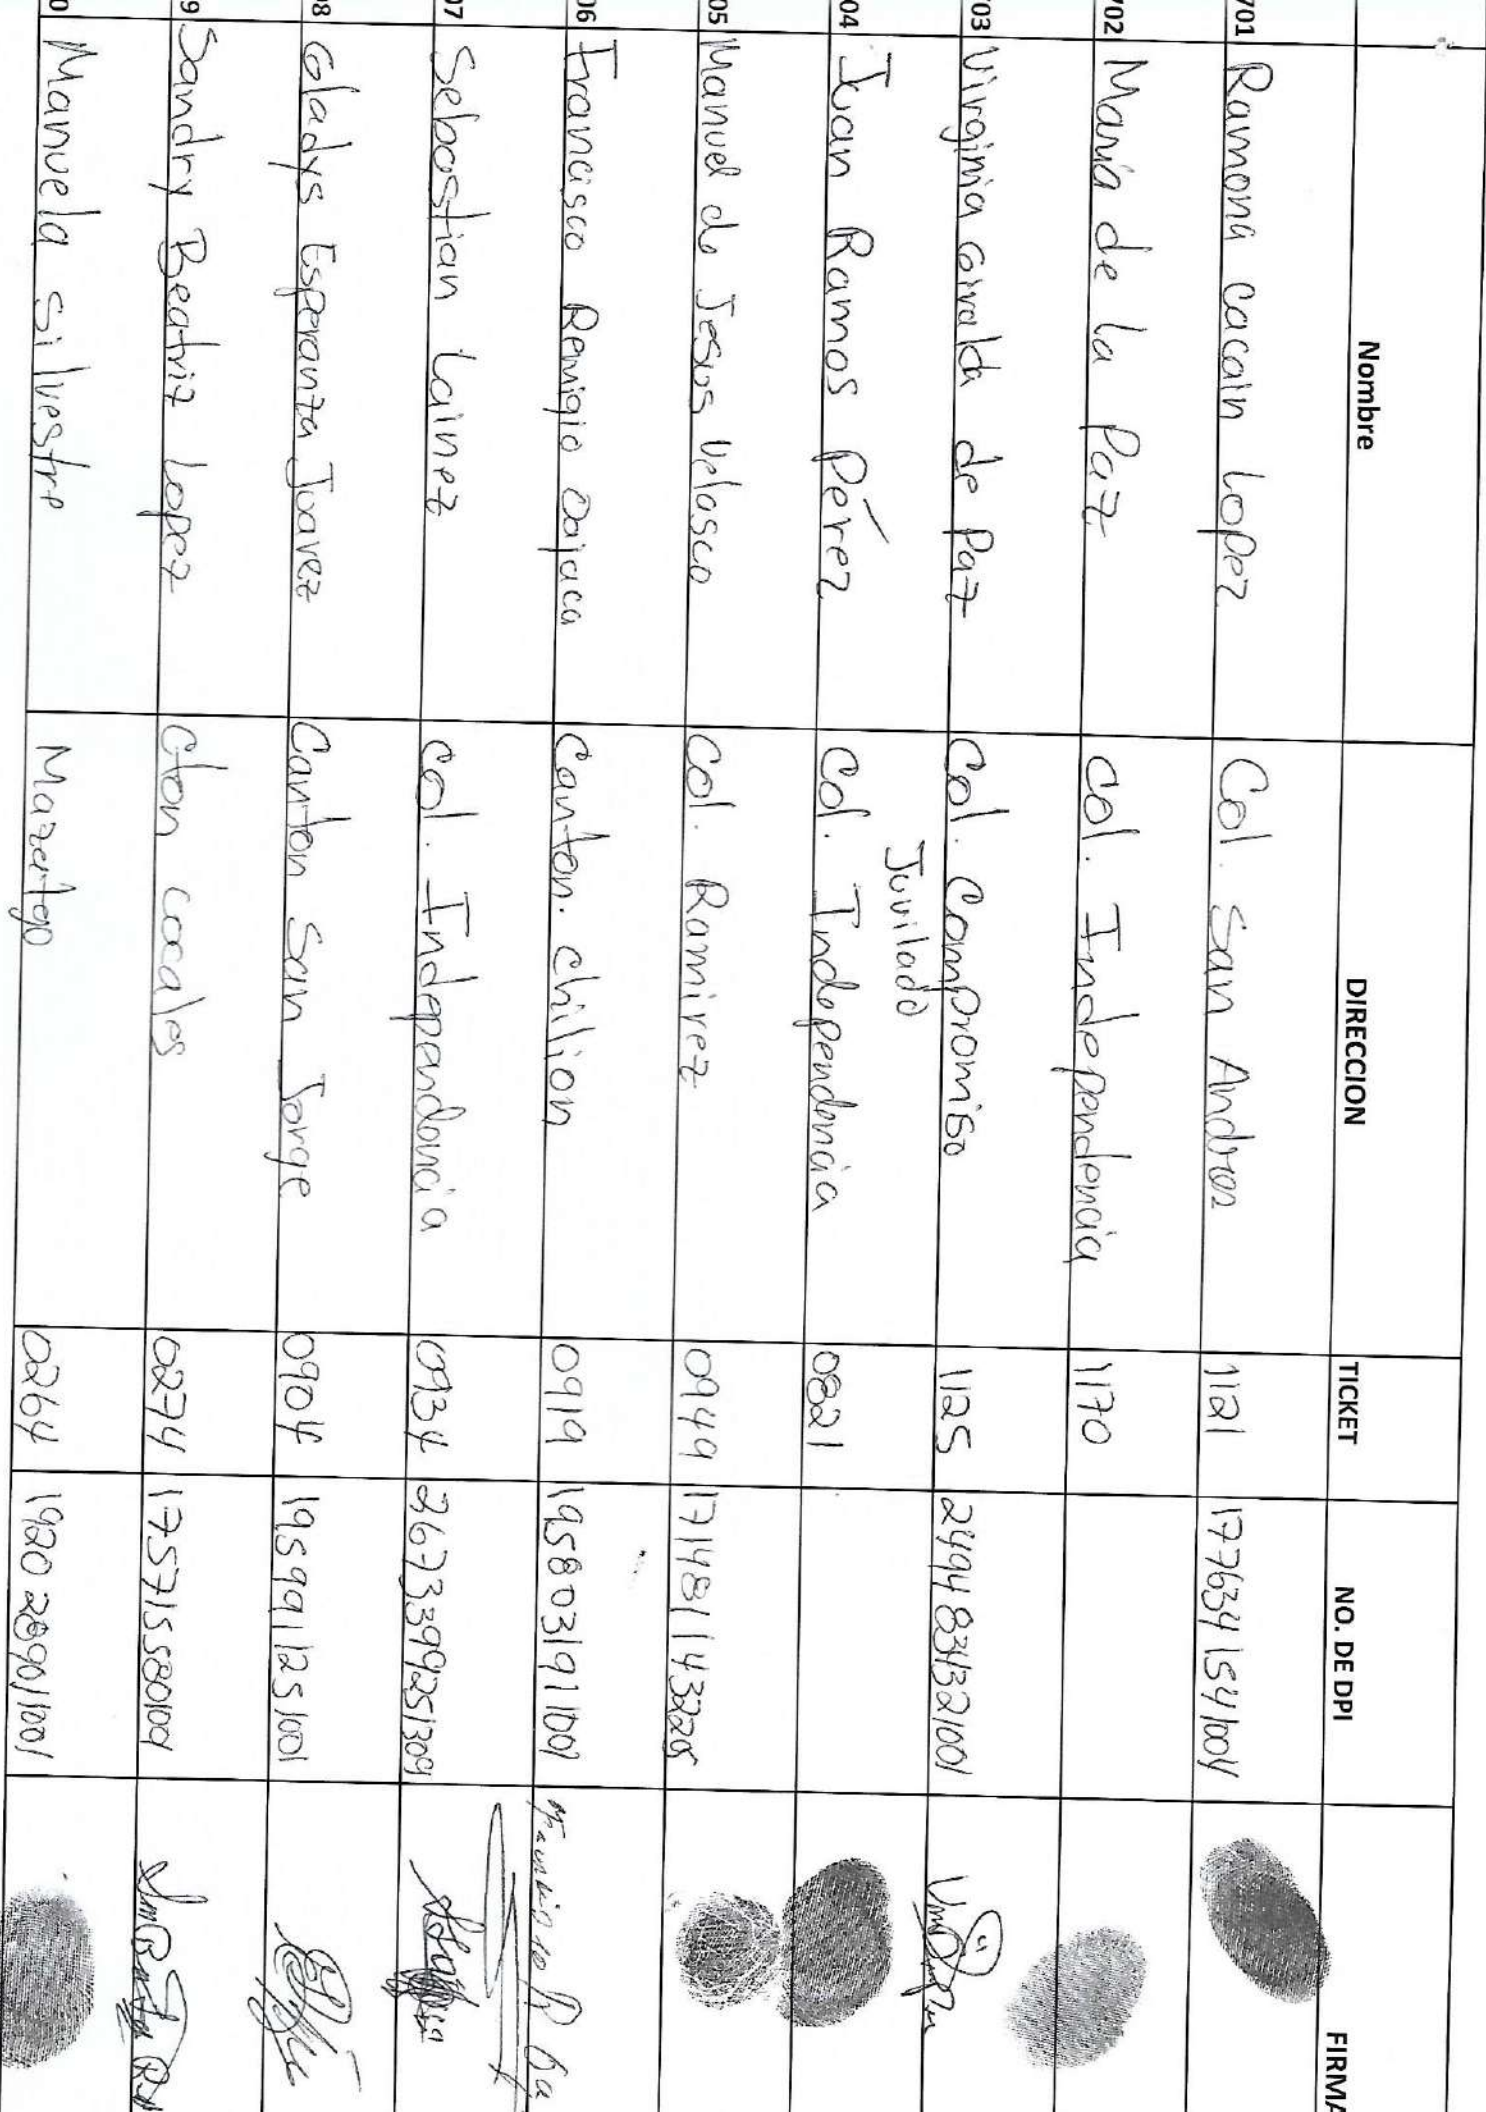 Nombre DIRECCION TICKET NO. DE DPI FIRMA
701 Ramona Cacain Lopez Col. San Andres 1121 1776341541004
702 Maria de la Paz Col. Independencia 1170
03 Virginia Giralda de Paz Col. Compromiso 1125 2494834321001
Juvilado
04 Juan Ramos Pérez Col. Independencia 0821
05 Manuel de Jesus Velasco Col. Ramirez 0949
06 Francisco Remigio Dajaca Canton. chilion 0919 1958031911001
07 Sebastian Lainez Col. Independencia 0934 2673399251309
08 Gladys Esperanza Juarez Canton San Jorge 0904 1959911251001
9 Sandry Beatriz Lopez Cton cocales 0274
0 Manuela Silvestre 0264